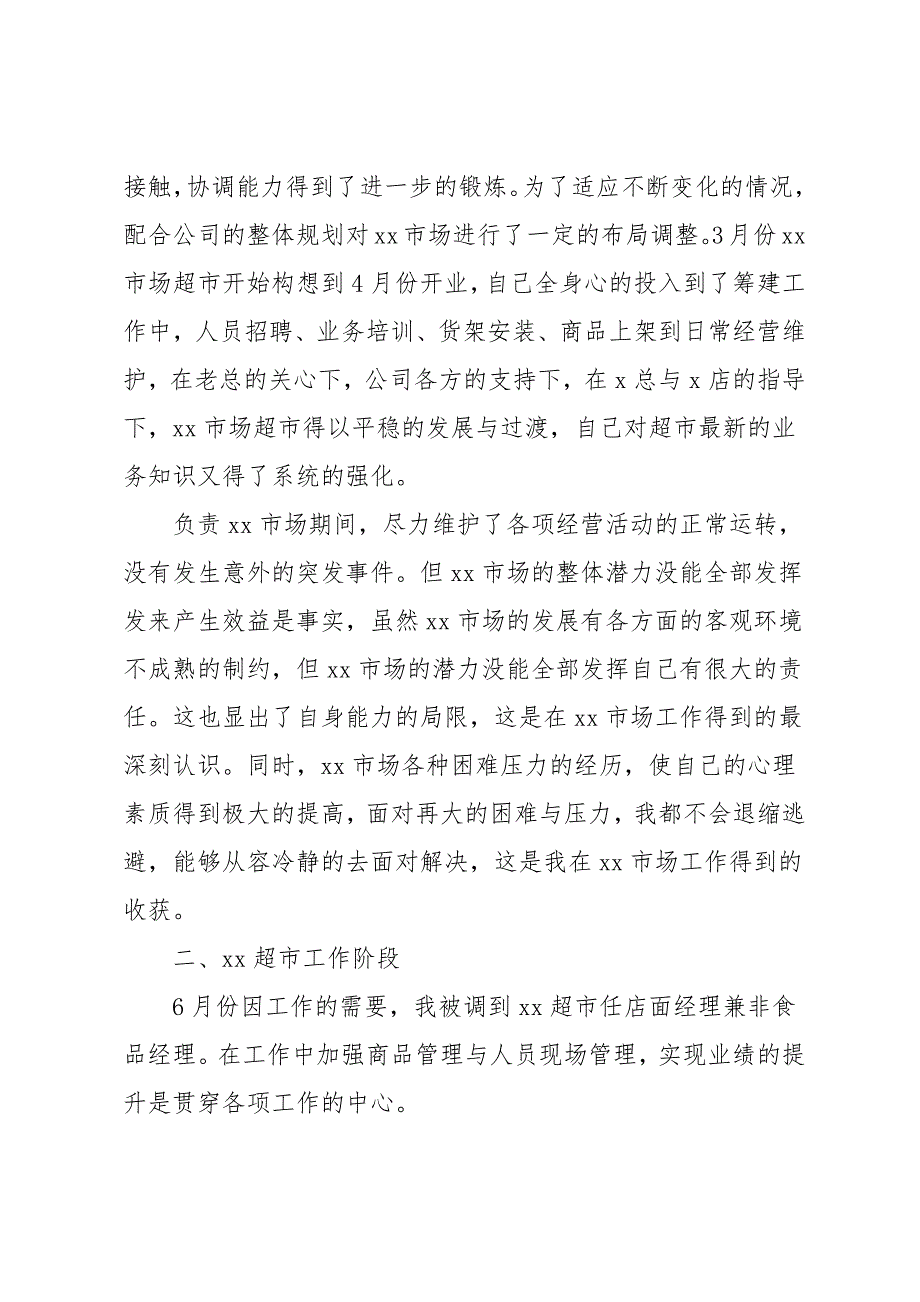 接触，协调能力得到了进一步的锻炼。为了适应不断变化的情况，
配合公司的整体规划对 xx 市场进行了一定的布局调整。3 月份 xx
市场超市开始构想到 4 月份开业，自己全身心的投入到了筹建工
作中，人员招聘、业务培训、货架安装、商品上架到日常经营维
护，在老总的关心下，公司各方的支持下，在 x 总与 x 店的指导
下，xx 市场超市得以平稳的发展与过渡，自己对超市最新的业
务知识又得了系统的强化。
负责 xx 市场期间，尽力维护了各项经营活动的正常运转，
没有发生意外的突发事件。但 xx 市场的整体潜力没能全部发挥
发来产生效益是事实，虽然 xx 市场的发展有各方面的客观环境
不成熟的制约，但 xx 市场的潜力没能全部发挥自己有很大的责
任。这也显出了自身能力的局限，这是在 xx 市场工作得到的最
深刻认识。同时，xx 市场各种困难压力的经历，使自己的心理
素质得到极大的提高，面对再大的困难与压力，我都不会退缩逃
避，能够从容冷静的去面对解决，这是我在 xx 市场工作得到的
收获。
二、xx 超市工作阶段
6 月份因工作的需要，我被调到 xx 超市任店面经理兼非食
品经理。在工作中加强商品管理与人员现场管理，实现业绩的提
升是贯穿各项工作的中心。